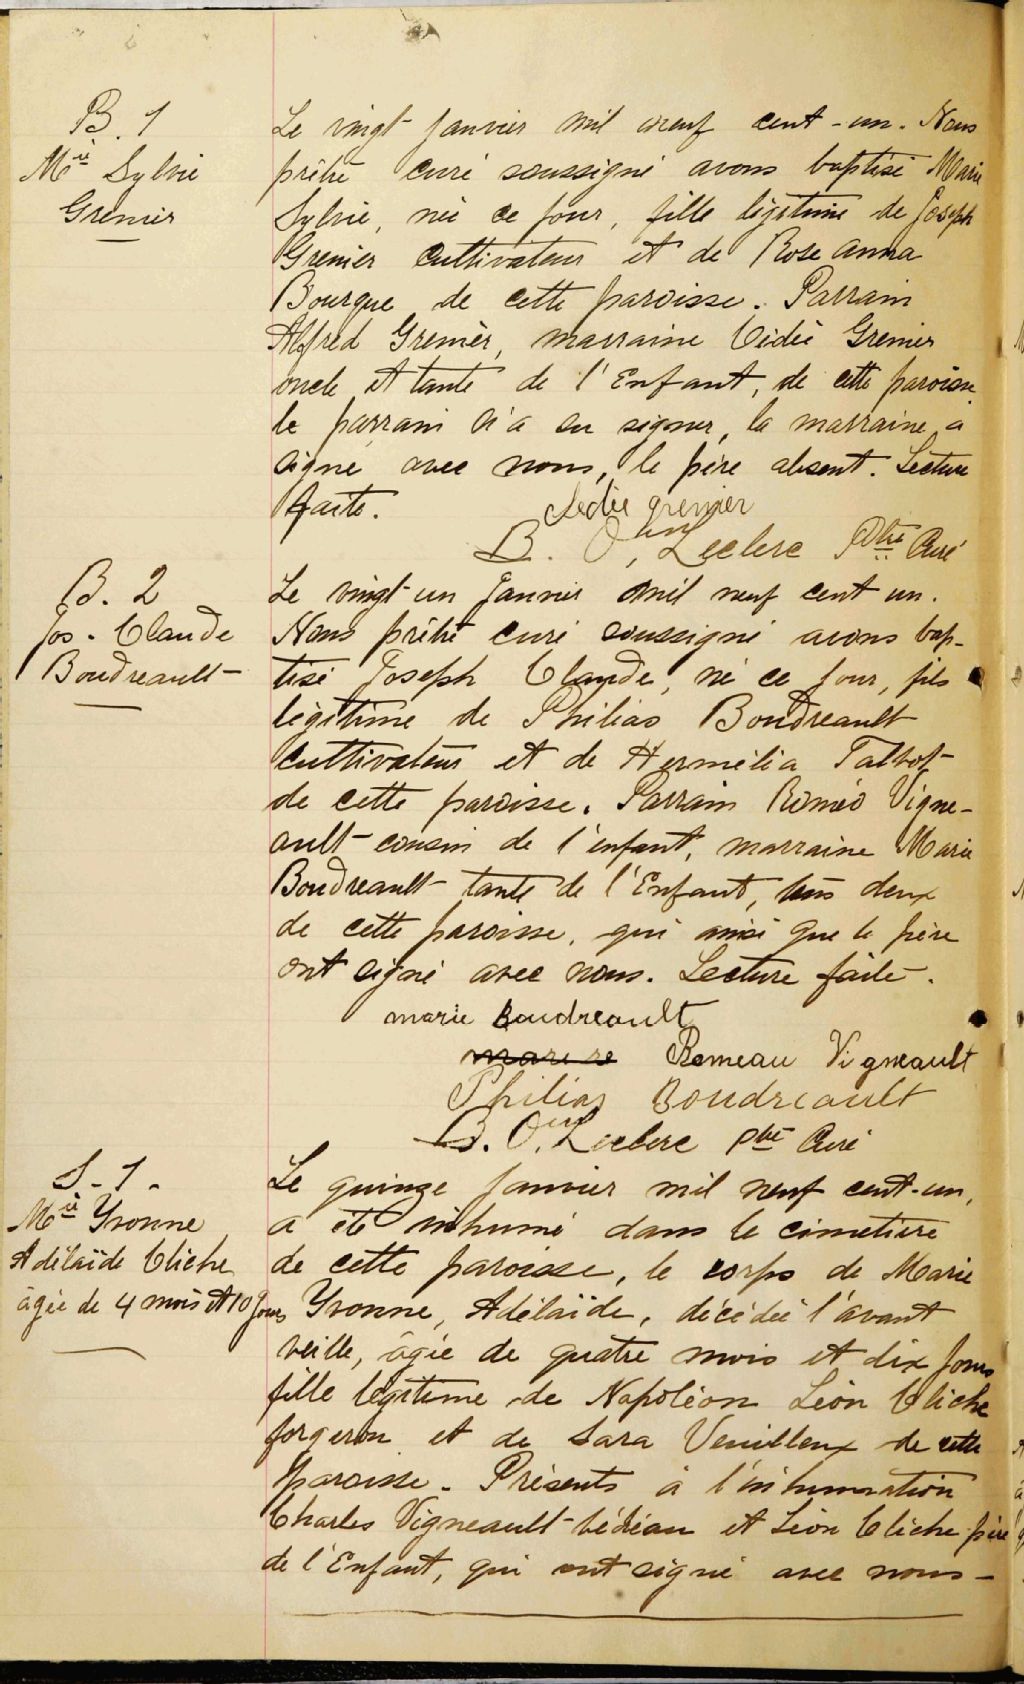 B. 1
Mie Sylvie
Grenier
Le vingt janvier mil neuf cent-un. Nous
prêtre curé soussigné avons baptisé Marie
Sylvie, née ce jour, fille légitime de Joseph
Grenier cultivateur et de Rose Anna
Bourque de cette paroisse. Parrain
Alfred Grenier, marraine Cédée Grenier
oncle et tante de l'Enfant, de cette paroisse
le parrain n'a su signer, la marraine a
signé avec nous, le père absent. Lecture
faite.
Cédée grenier
B. Oum Leclerc Ptre Curé
B. 2
Jos. Claude
Boudreault
Le vingt-un Janvier mil neuf cent un.
Nous prêtre curé soussigné avons bap-
tisé Joseph Claude, né ce jour, fils
légitime de Philias Boudreault
cultivateur et de Hermélia Talbot
de cette paroisse. Parrain Roméo Vigne-
ault cousin de l'enfant, marraine Marie
Boudreault tante de l'Enfant, tous deux
de cette paroisse, qui ainsi que le père
ont signé avec nous. Lecture faite.
marie Boudreault
Romeau Vigneault
Philias Boudreault
B. Oum Leclerc Ptre Curé
S. 1.
Mie Yvonne
Adélaïde Cliche
âgée de 4 mois et 10 jours
Le quinze Janvier mil neuf cent-un,
a été inhumé dans le cimetière
de cette paroisse, le corps de Marie
Yvonne, Adélaïde, décédée l'avant
veille, âgée de quatre mois et dix jours
fille légitime de Napoléon Léon Cliche
forgeron et de Sara Veuilleux de cette
paroisse. Présents à l'inhumation
Charles Vigneault bédeau et Léon Cliche père
de l'Enfant, qui ont signé avec nous-